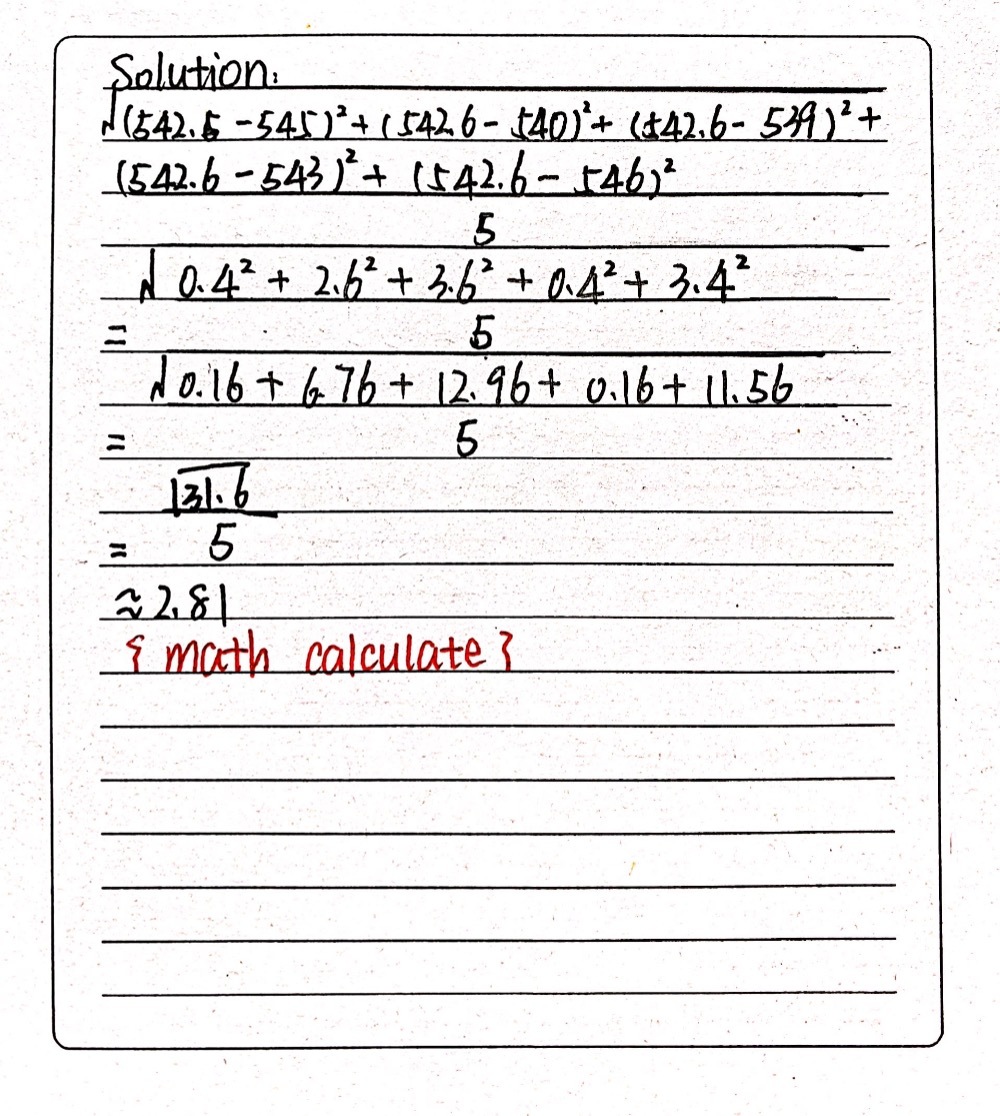 Solution:
√(542.6 -545)²+(542.6- 540)²+ (542.6- 539)²+
(542.6-543)²+ (542.6- 546)²
5
√ 0.4² + 2.6² + 3.6² + 0.4² + 3.4²
= 5
√0.16 + 6.76 + 12.96 + 0.16 + 11.56
= 5
√31.6
= 5
≈2.81
{ math calculate }